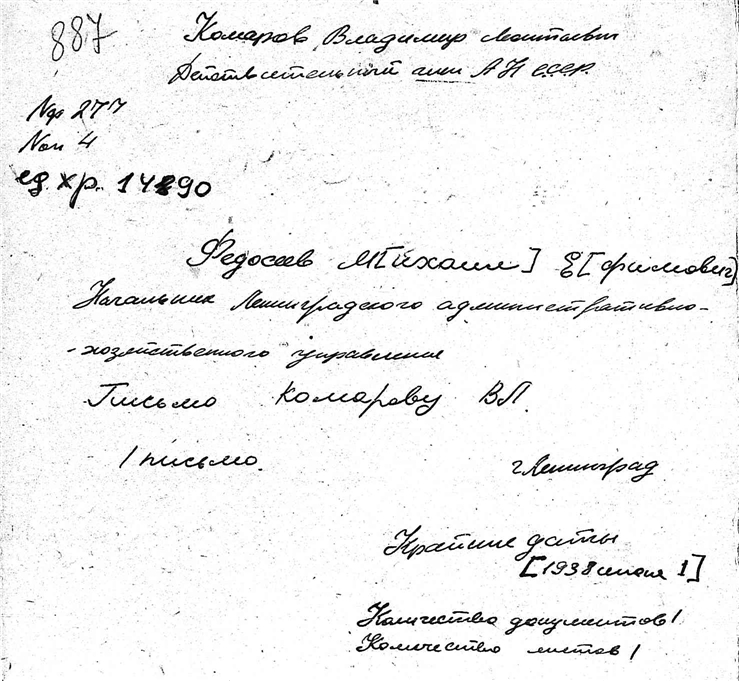 887
Комаров Владимир Леонтьевич
Действительный член АН СССР.
Nф 277
Nоп 4
ед. хр. 14890
Федосеев М[ихаил] Е[фимович]
Начальник Ленинградского административно-
-хозяйственного управления
Письмо Комарову ВЛ.
1 письмо.
г Ленинград
Крайние даты
[1938 1]
Количество документов 1
Количество листов 1